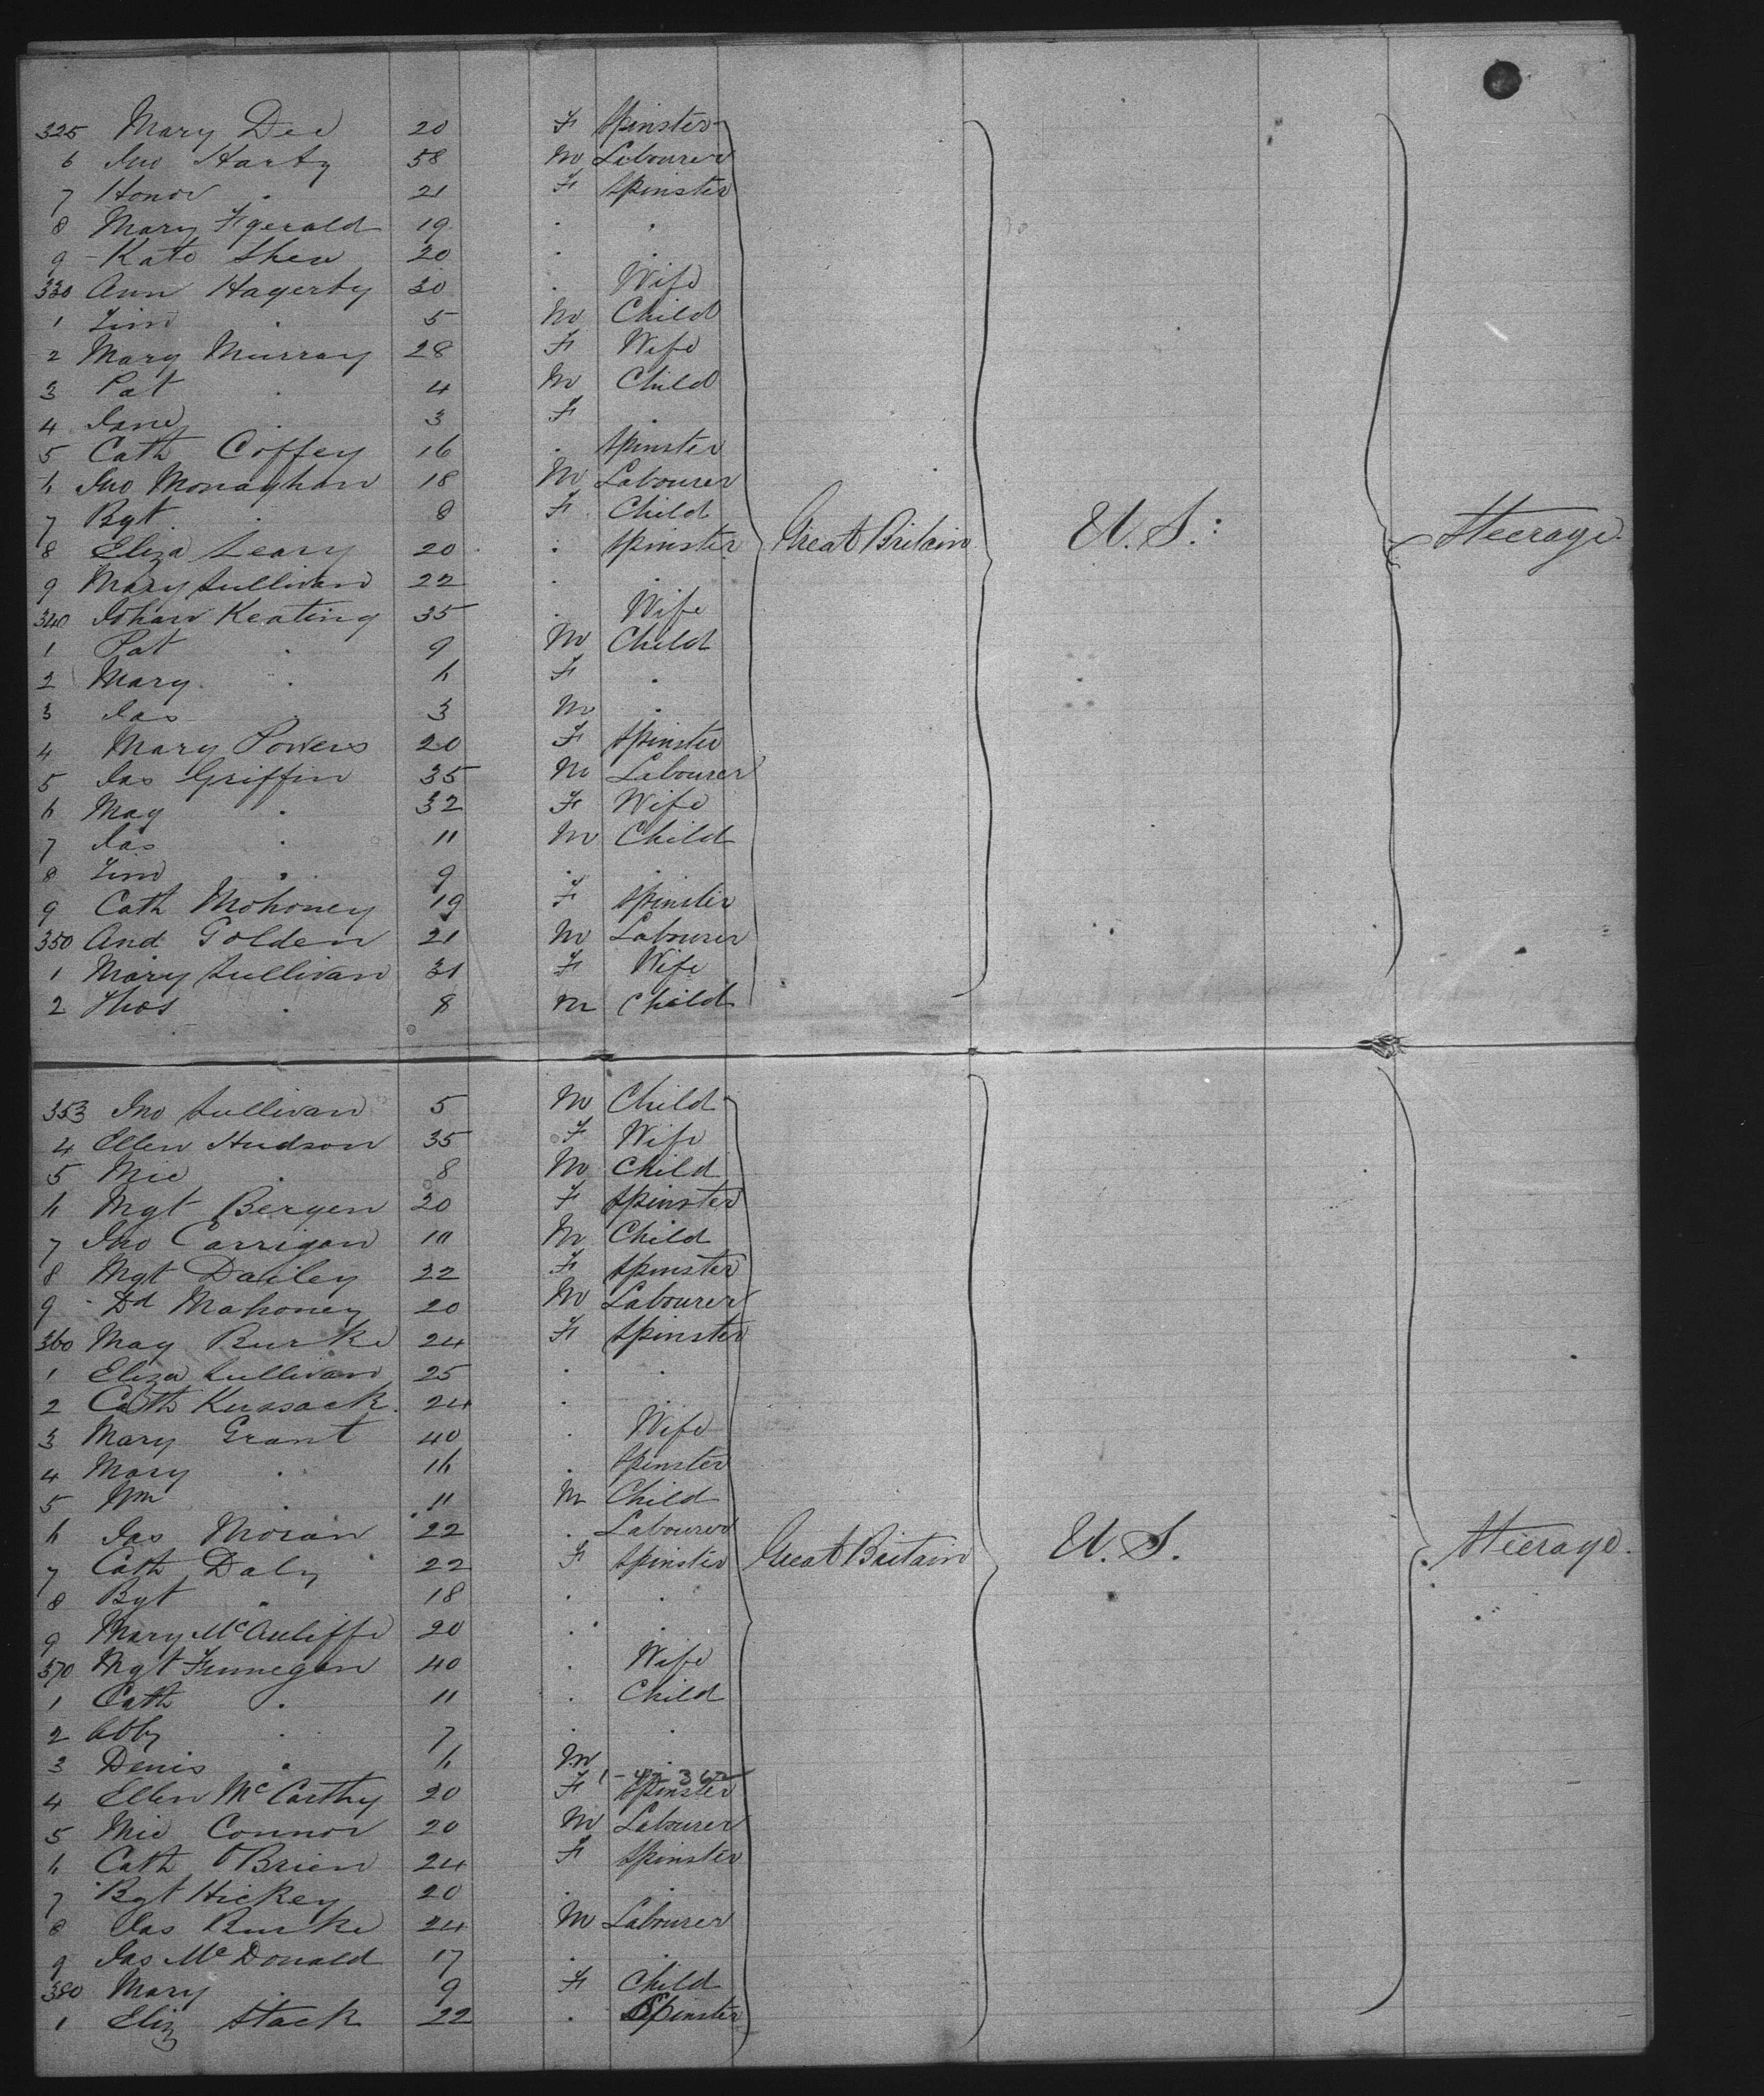 325 Mary Dee 20 F Spinster
6 Jno Harty 58 M Labourer
7 Honor . 21 F Spinster
8 Mary Fgerald 19 . .
9 Kate Shea 20 . .
330 Ann Hagerty 30 . Wife
1 Tim . 5 M Child
2 Mary Murray 28 F Wife
3 Pat . 4 M Child
4 Jane . 3 F .
5 Cath Coffey 16 . Spinster
6 Jno Monaghan 18 M Labourer
7 Bgt . 8 F Child
8 Eliza Leary 20 . Spinster Great Britain U. S. Steerage
9 Mary Sullivan 22 . .
340 Johan Keating 35 . Wife
1 Pat . 9 M Child
2 Mary . 6 F .
3 Jas . 3 M .
4 Mary Powers 20 F Spinster
5 Jas Griffin 35 M Labourer
6 May . 32 F Wife
7 Jas . 11 M Child
8 Tim . 9 . .
9 Cath Mohoney 19 F Spinster
350 And Golden 21 M Labourer
1 Mary Sullivan 31 F Wife
2 Thos . 8 M Child
353 Jno Sullivan 5 M Child
4 Ellen Hudson 35 F Wife
5 Mic . 8 M Child
6 Mgt Bergen 20 F Spinster
7 Jno Carrigan M Child
8 Mgt Dailey 22 F Spinster
9 Dd Mahoney 20 M Labourer
360 May Burke 24 F Spinster
1 Eliza Sullivan 25 . .
2 Cath Kussack 24 . .
3 Mary Grant 40 . Wife
4 Mary . 16 . Spinster
5 Wm . 11 M Child
6 Jas Moran 22 . Labourer
7 Cath Daly 22 F Spinster Great Britain U. S. Steerage
8 Bgt . 18 . .
9 Mary McAuliffe 20 . .
370 Mgt Finnegan 40 . Wife
1 Cath . 11 . Child
2 Abby . 7 . .
3 Denis . 6 M .
4 Ellen McCarthy 20 F Spinster
5 Mic Connor 20 M Labourer
6 Cath OBrien 24 F Spinster
7 Bgt Hickey 20 . .
8 Jas Burke 24 M Labourer
9 Jas McDonald 17 . .
380 Mary . 9 F Child
1 Eliz Stack 22 . Spinster